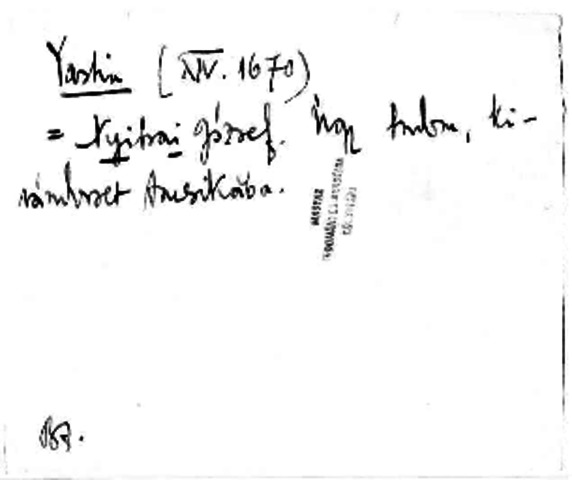 Yashin [XIV. 1670)
= Nyitrai József. Úgy tudom, ki-
vándorolt Amerikába.
MAGYAR
TUDOMÁNYOS AKADÉMIA
KÖNYVTÁRA